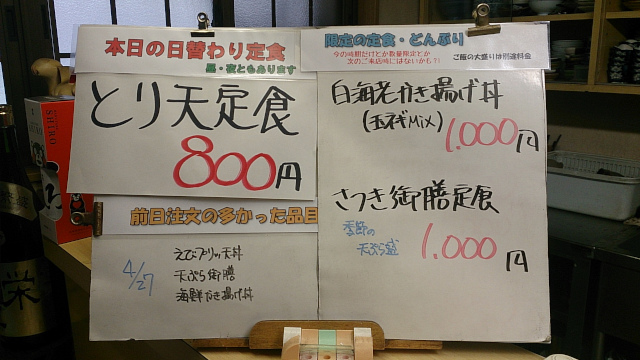 本日の日替わり定食
昼・夜ともあります
とり天定食
800円
前日注文の多かった品目
4/27
えびプリッ天丼
天ぷら御膳
海鮮かき揚げ丼
限定の定食・どんぶり
今の時期だけとか数量限定とか
次のご来店時にはないかも?!
ご飯の大盛りは別途料金
白海老かき揚げ丼
(玉ネギMix)
1,000円
さつき御膳定食
季節の
天ぷら盛
1,000円